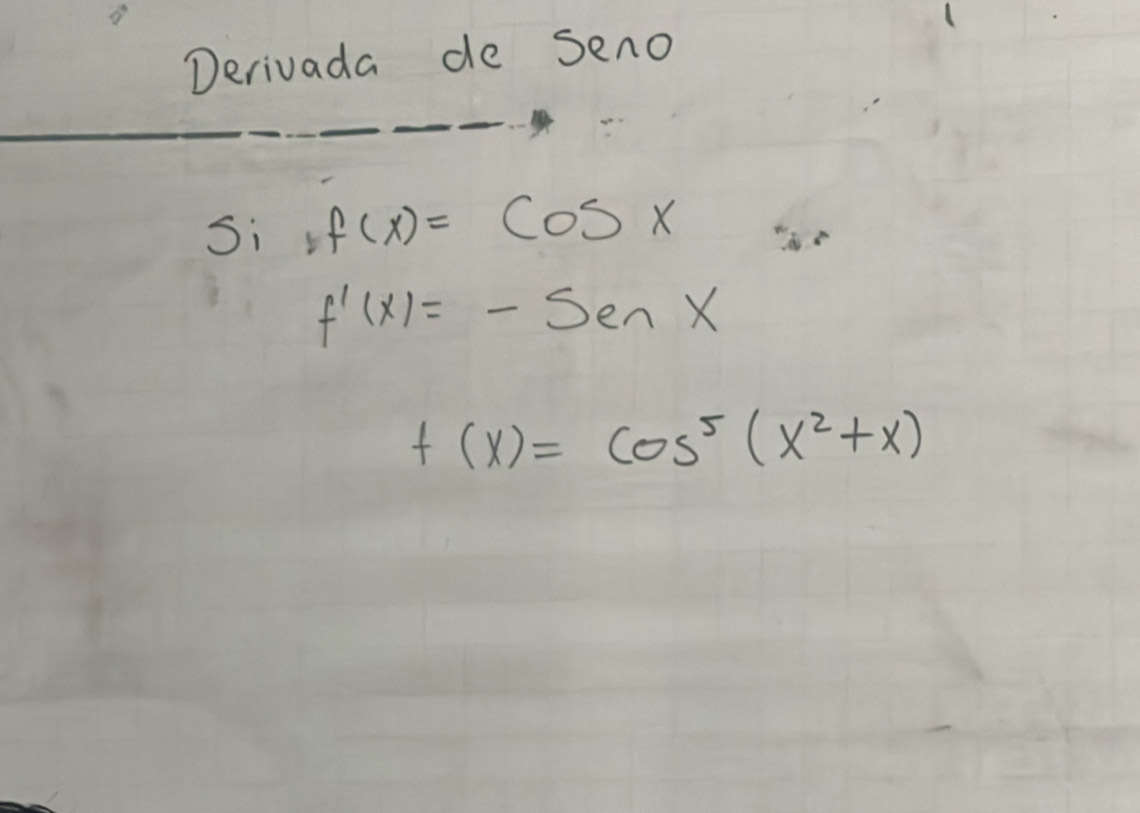 Derivada de Seno
Si f(x) = Cos x
f'(x) = - Sen x
f(x) = Cos⁵ (x² + x)